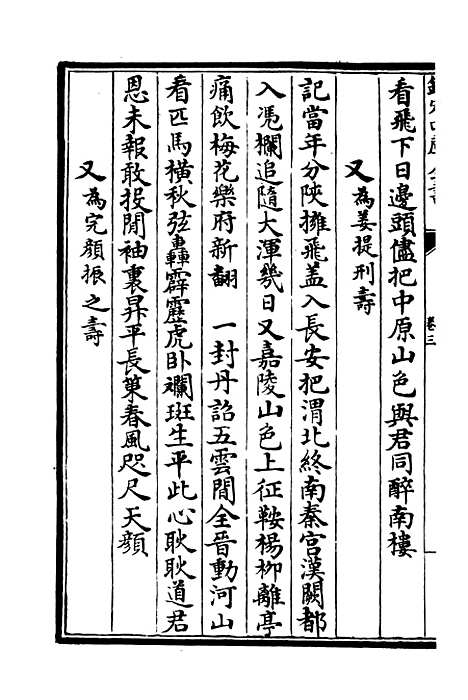 欽定四庫全書
卷三
看飛下日邊頭儘把中原山色與君同醉南樓
又為姜提刑壽
記當年分陜擁飛蓋入長安把渭北終南秦宫漢闕都
入凭欄追隨大渾幾日又嘉陵山色上征鞍楊柳離亭
痛飲梅花樂府新翻　一封丹詔五雲間全晉動河山
看匹馬横秋弦轟霹靂虎卧斕斑生平此心耿耿道君
恩未報敢投閒袖裏昇平長策春風咫尺天顔
又為完顔振之壽